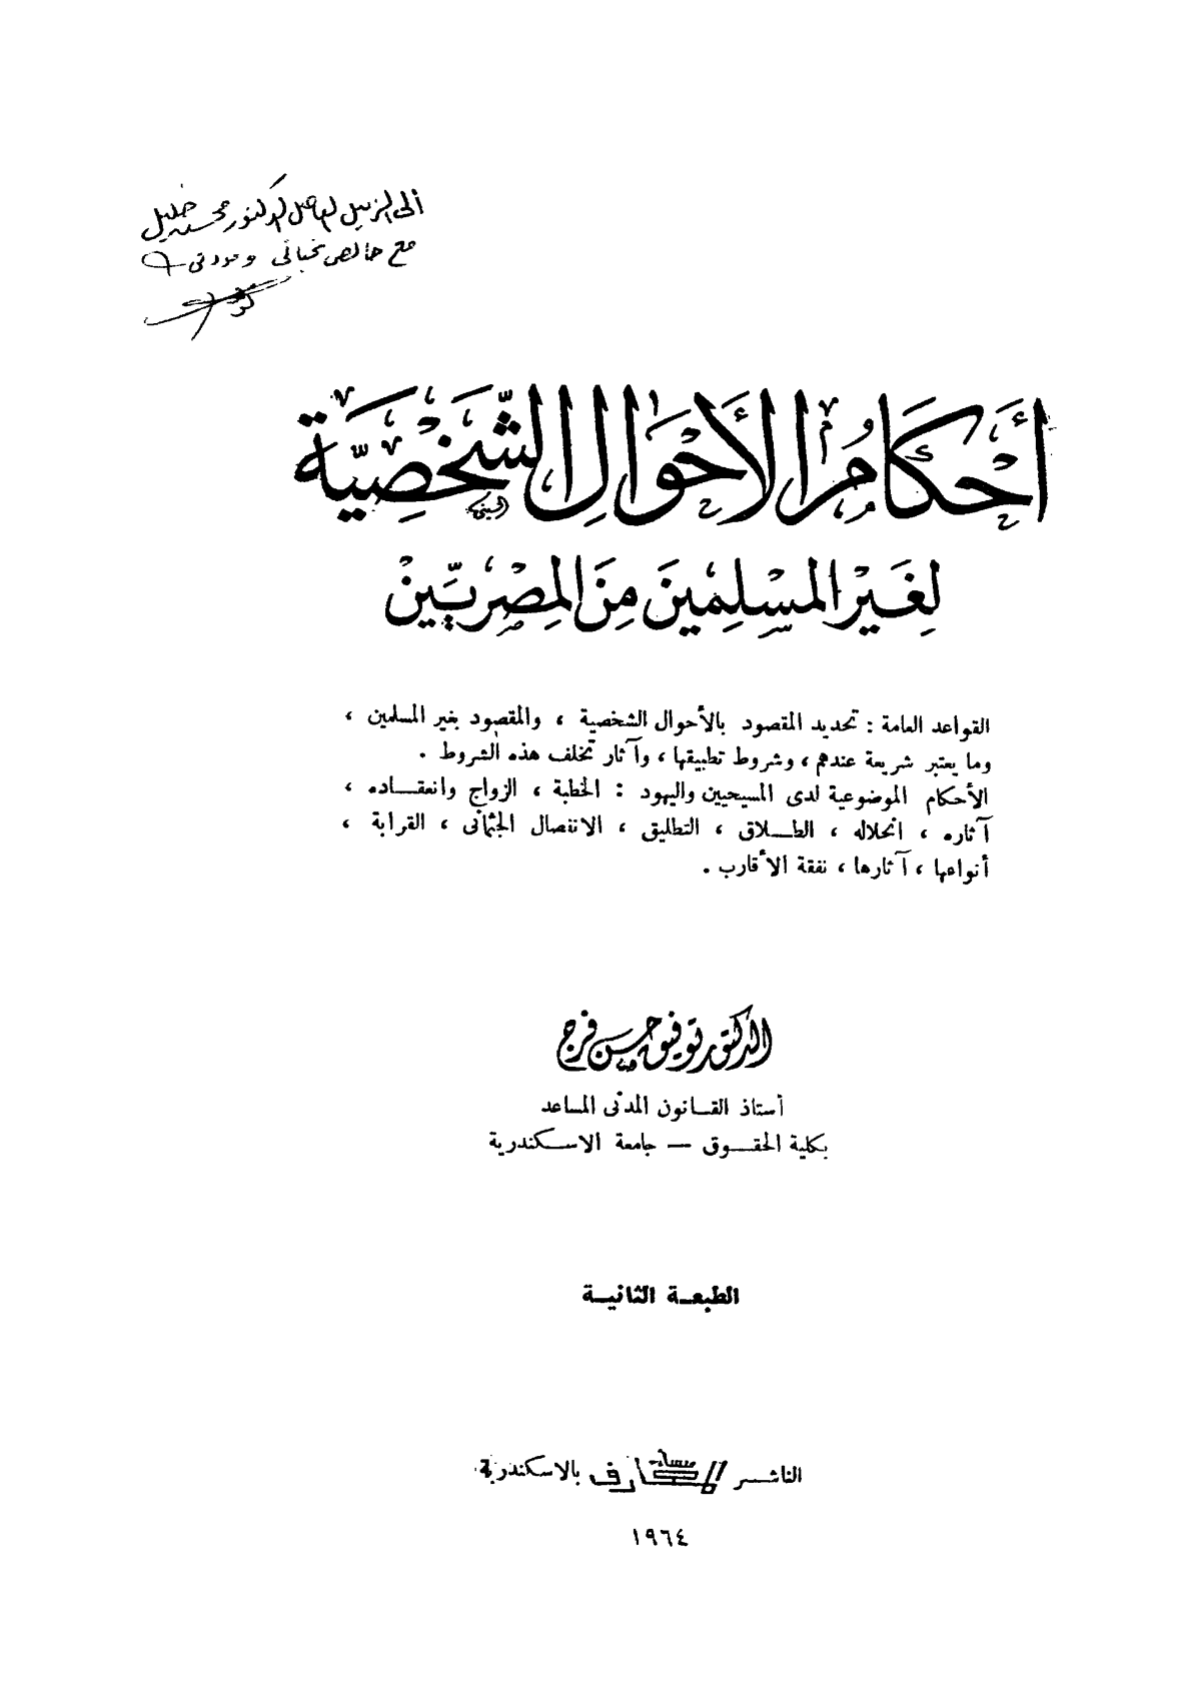 إلى الزميل الفاضل الدكتور محسن خليل
مع خالص تحياتي ومودتي
أَحكَامُ الأَحوَالِ الشَّخصِيَّة
لِغَيْرِ المسْلِمِينَ مِنَ المِصْرِيِّينْ
القواعد العامة : تحديد المقصود بالأحوال الشخصية ، والمقصود بغير المسلمين ،
وما يعتبر شريعة عندهم ، وشروط تطبيقها ، وآثار تخلف هذه الشروط .
الأحكام الموضوعية لدى المسيحيين واليهود : الخطبة ، الزواج وانعقـــاده ،
آثاره ، انحلاله ، الطـــلاق ، التطليق ، الانفصال الجثمانى ، القرابة ،
أنواعها ، آثارها ، نفقة الأقارب .
الدكتور توفيق حسن فرج
أستاذ القــانون المدنى المساعد
بكلية الحقــوق — جامعة الاســكندرية
الطبعــة الثانيــة
الناشــر منشأة المعارف بالاسكندرية
١٩٦٤